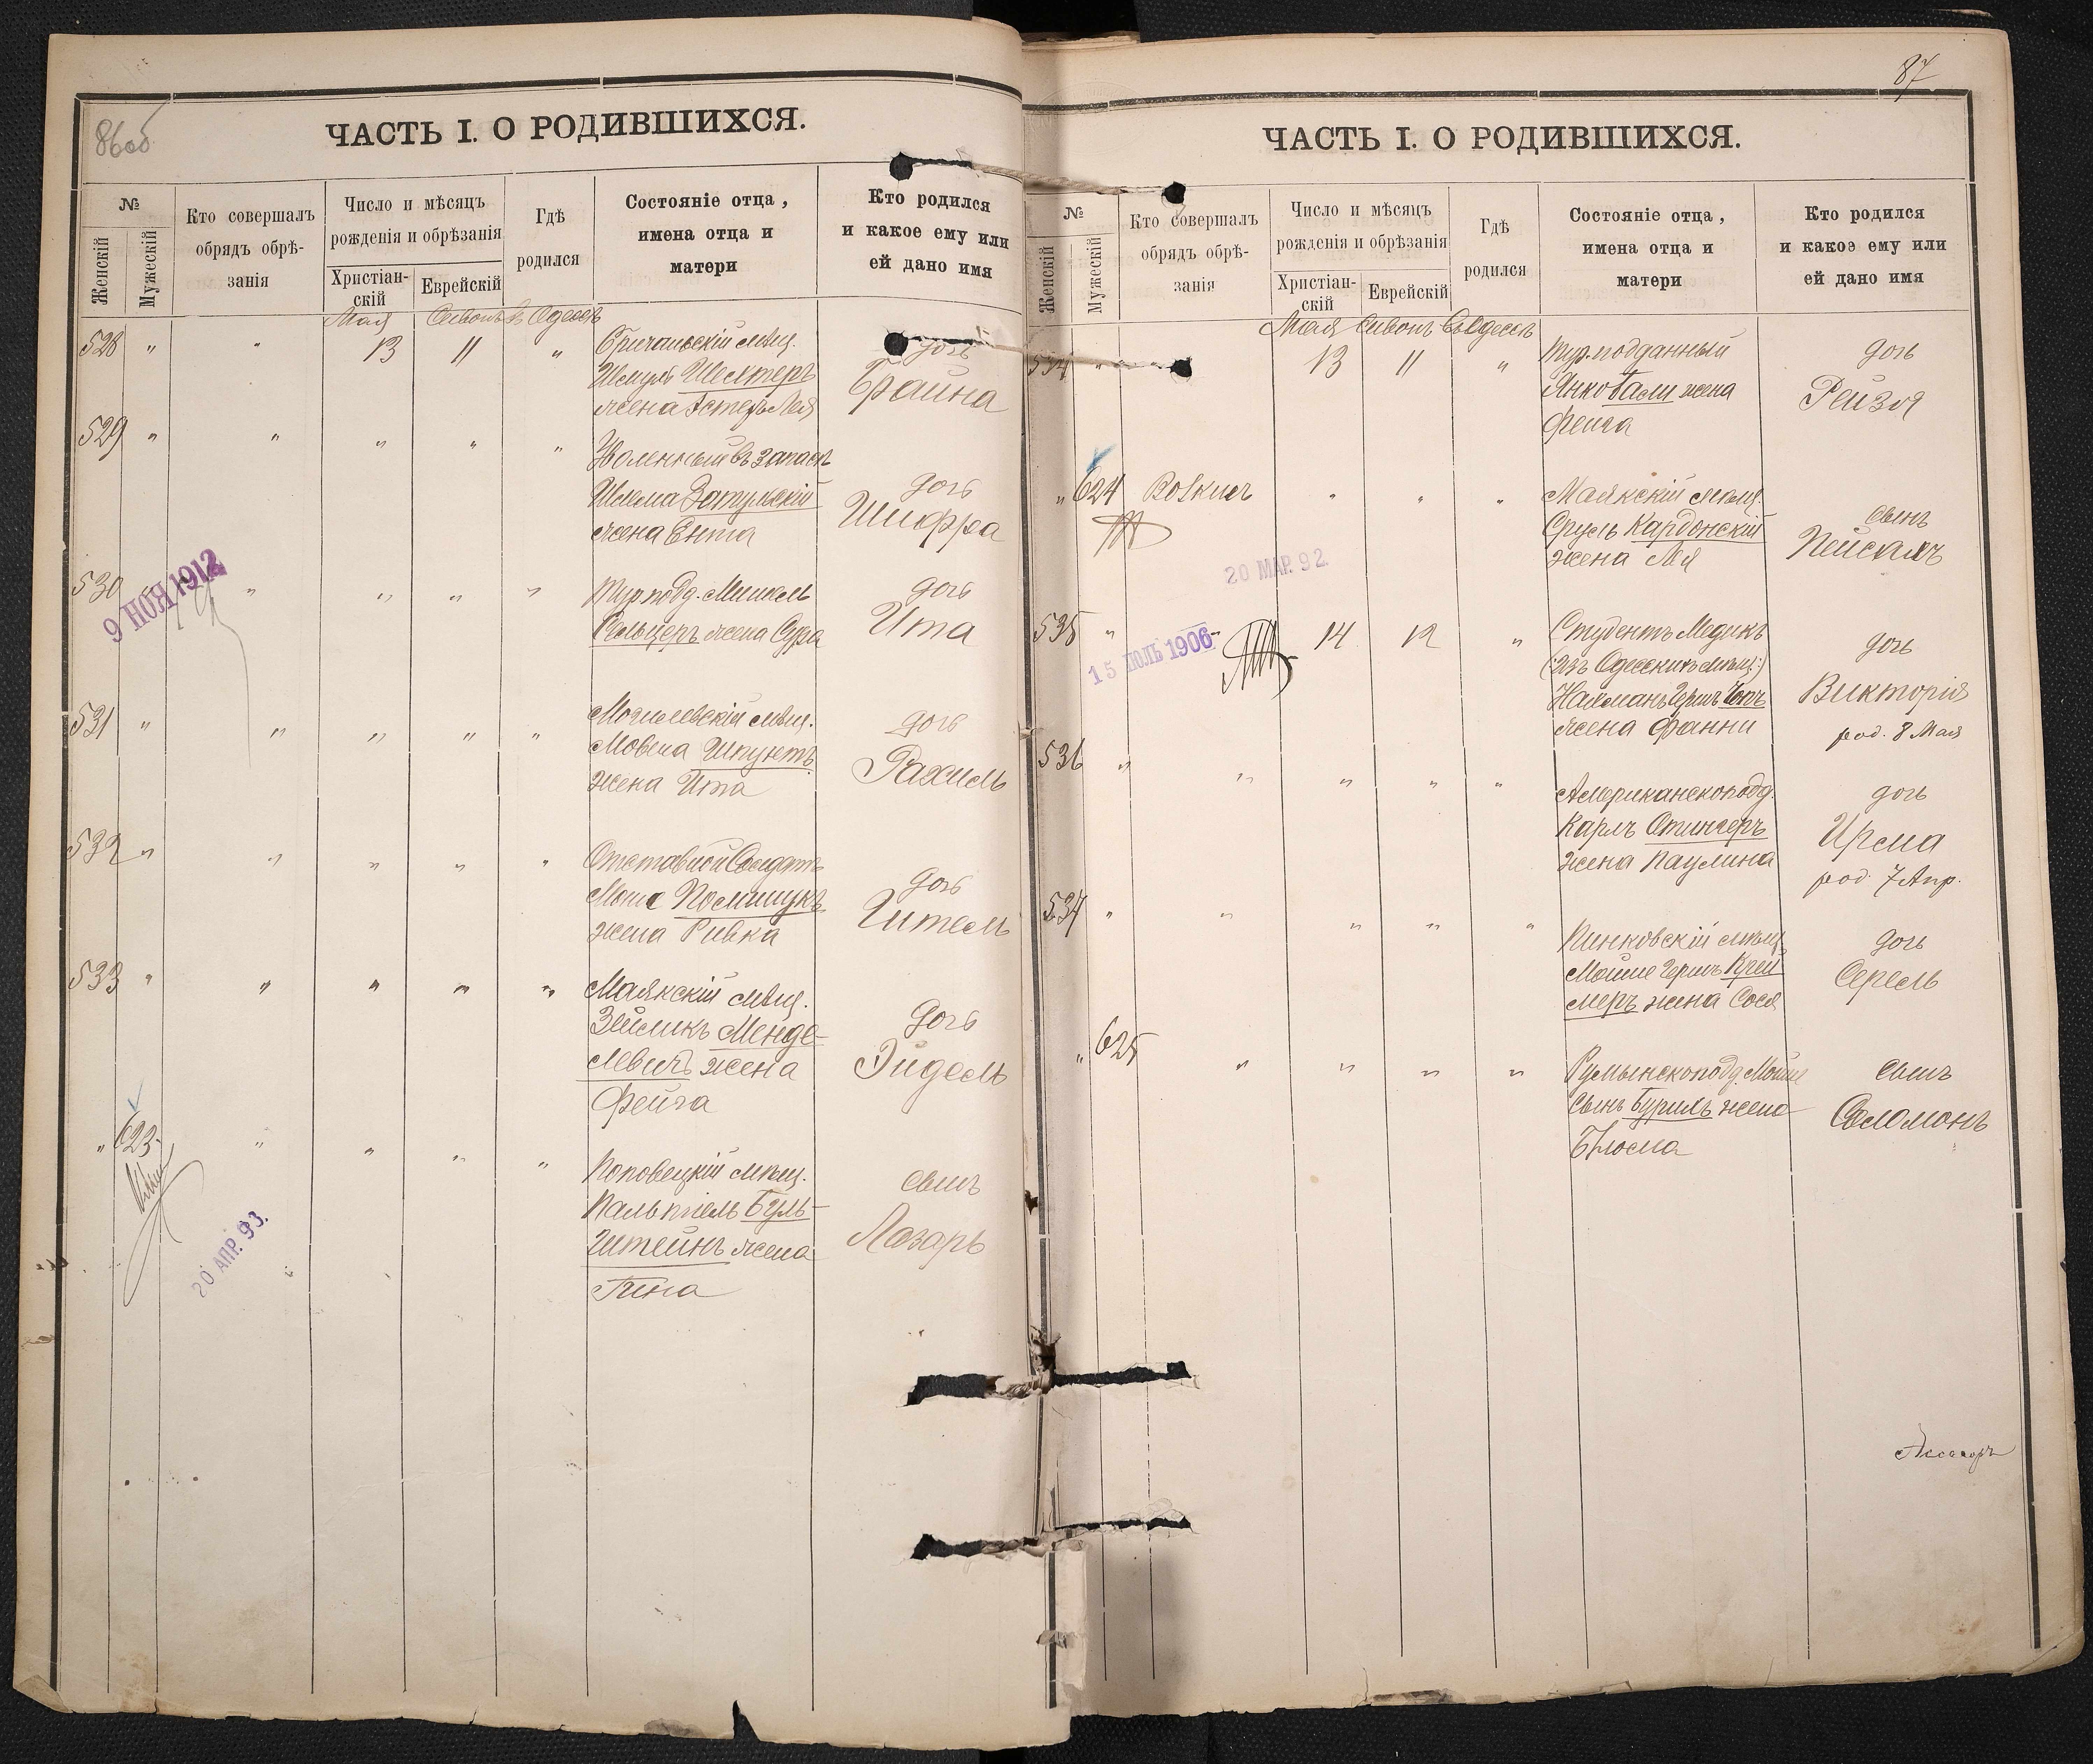 86 об
ЧАСТЬ I. О РОДИВШИХСЯ.
№
Женскій
Мужескій
Кто совершалъ
обрядъ обрѣ-
занія
Число и мѣсяцъ
рожденія и обрѣзанія
Христіан-
скій
Еврейскій
Гдѣ
родился
Состояніе отца,
имена отца и
матери
Кто родился
и какое ему или
ей дано имя
Мая Сивонъ въ Одессѣ
528 " " 13 11 " Бричанскій мѣщ. дочь
Шмуль Шехтеръ Брайна
жена Эстеръ Лея
529 " " " " "
въ запасъ
Шлема дочь
жена Ента Шифра
530 " " " " Тур. подд. дочь
Сельцеръ жена Сура Ита
9 НОЯ 1912
531 " " " " " Могилевскій мѣщ. дочь
Мовша Шпунтъ Рахиль
жена Ита
532 " " " " " Отставной Солдатъ дочь
Мошe Полищукъ Гитель
жена Ривка
533 " " " " " Маякскій мѣщ. дочь
Зейликъ Менде-
левичъ жена Эйдель
Фейга
" 623 " " " " мѣщ. сынъ
Пальтіель Буль-
штейнъ жена Лазарь
Гина
20 АПР. 93.
87
ЧАСТЬ I. О РОДИВШИХСЯ.
№
Женскій
Мужескій
Кто совершалъ
обрядъ обрѣ-
занія
Число и мѣсяцъ
рожденія и обрѣзанія
Христіан-
скій
Еврейскій
Гдѣ
родился
Состояніе отца,
имена отца и
матери
Кто родился
и какое ему или
ей дано имя
Мая Сивонъ Въ Одессѣ
534 " 13 11 " Тур. подданный дочь
Янко жена Рейзя
Фейга
" 624 " " " Маякскій мѣщ. сынъ
Сруль Кардонскій Пейсахъ
жена Лея
20 МАР. 92.
535 " 14 12 " Студентъ Медикъ дочь
(:изъ Одесскихъ мѣщ:)
Нахманъ Гершъ Виктория
жена Фанни род. 8 Мая
15 ІЮЛЬ 1906
536 " " " " " Американскоподд. дочь
Карлъ Отингеръ Ирма
жена Паулина род. 7 Апр.
537 " " " " " Пинковскій мѣщ. дочь
Мойше Гершъ Крей-
меръ жена Сося Серель
" 625 " " " " Румынскоподд. Мойше сынъ
жена Соломонъ
Блюма